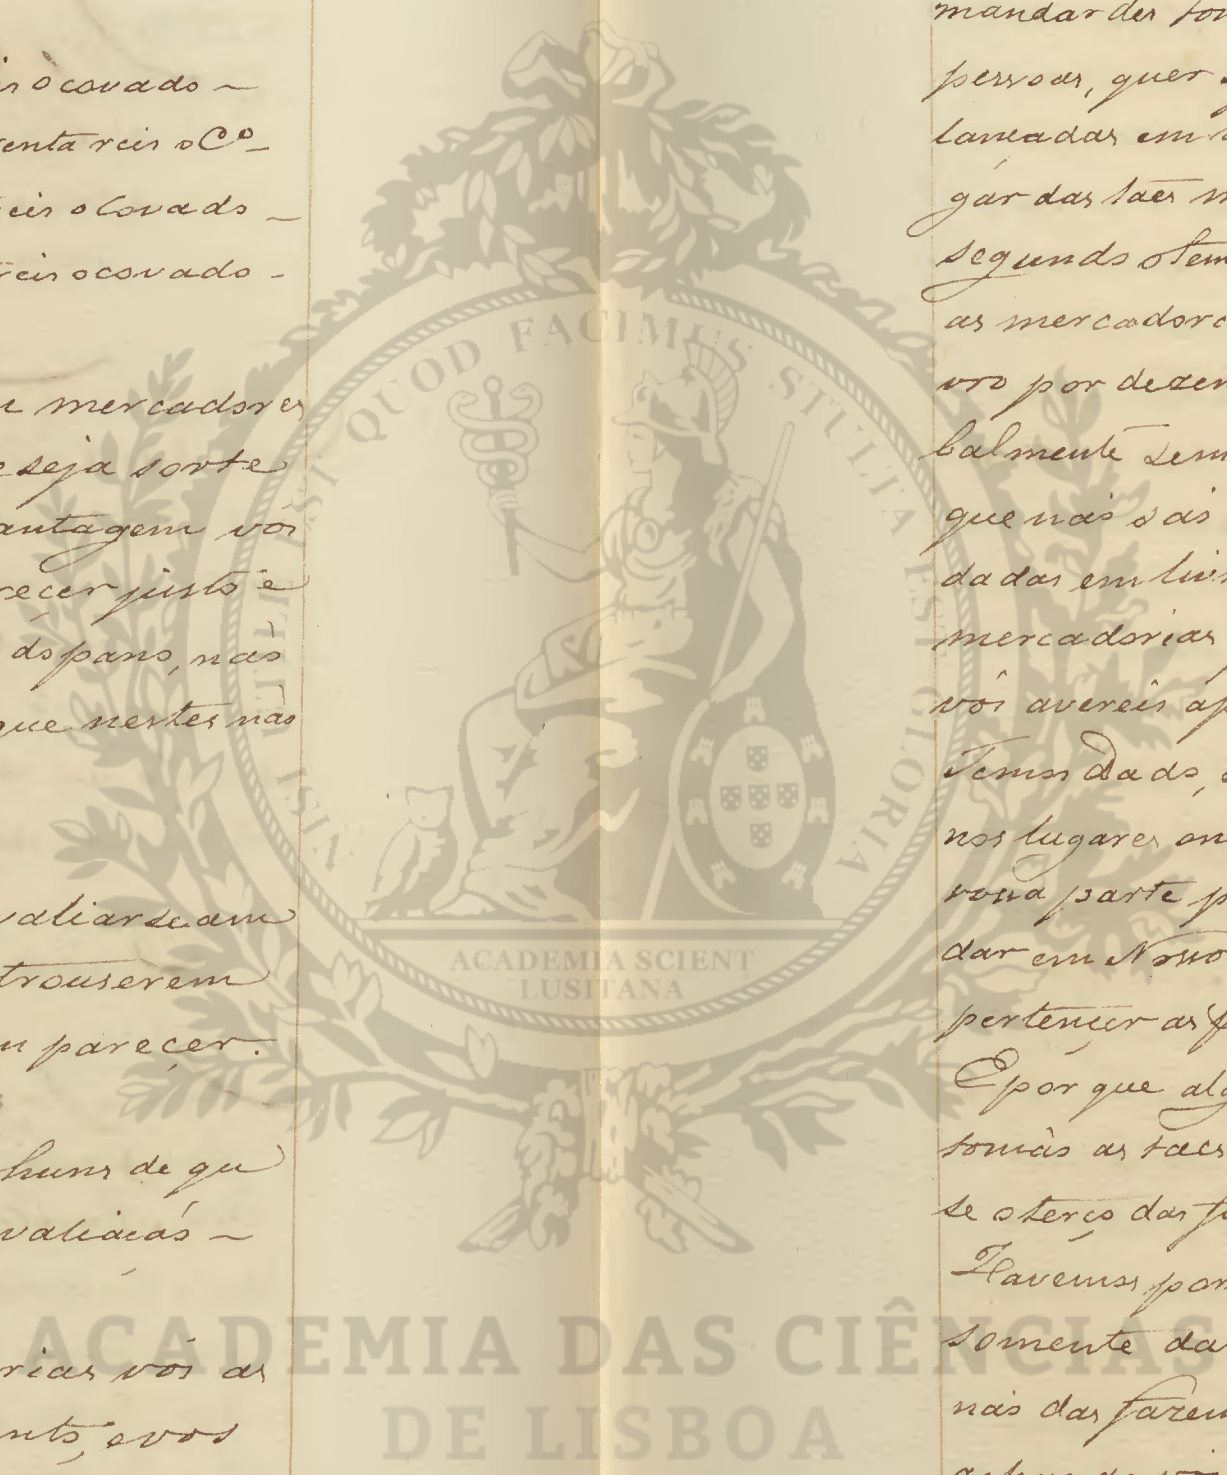 o covado ~
enta reis o Cº_
eis o Covado _
reis o covado -
mercadores
e seja sorte
antagem vos
recer justo e
do pano, naõ
que nestes naõ
valiarseam
trouserem
parecer.
huns de qu
valiacaõ ~
rias vos as
nto, e vos
mandardes
pessoas, quer
lancadas em
gar das taes
segundo o tem
as mercadori
vro por dezen
balmente sem
que naõ saõ
dadas em liv
mercadorias
vós avereis
Temos Dado,
nos lugares on
parte p
dar em
pertençer as
E por que alg
tomaõ as taes
se o terço das
Havemos por
somente da
naõ das fazen
NISI UTILE EST QUOD FACIMUS STULTA EST GLORIA
ACADEMIA SCIENT
LUSITANA
ACADEMIA DAS CIÊNCIAS
DE LISBOA